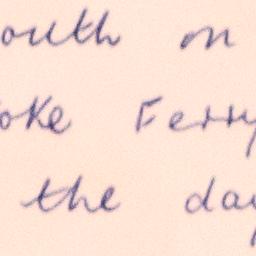 outh on
oke Ferry
the day